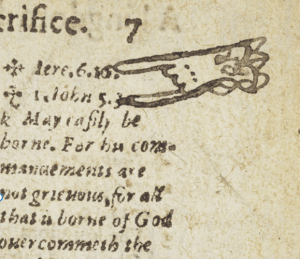 crifice. 7
✣ Iere. 6.16.
✣ 1. Iohn 5.3
k May easily be
borne. For his com-
mandements are
not grieuous, for all
that is borne of God
ouercommeth the